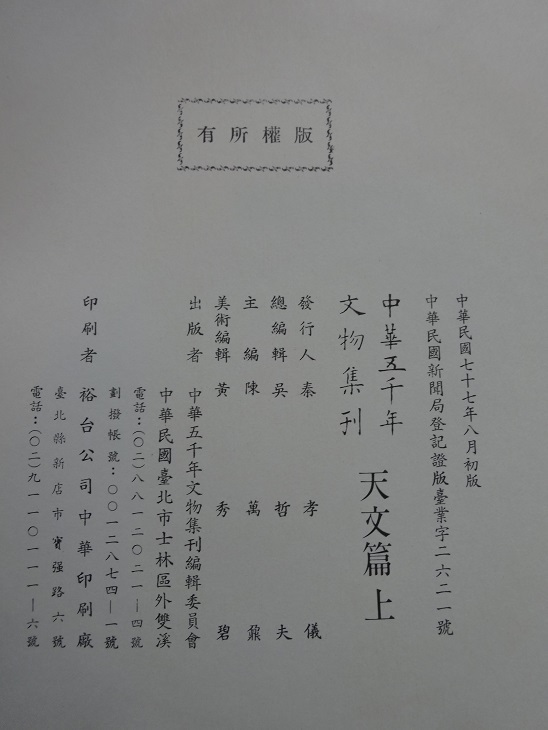 版權所有
中華民國七十七年八月初版
中華民國新聞局登記證版臺業字二六二一號
中華五千年
文物集刊
天文篇 上
發行人 秦 孝 儀
總編輯 吳 哲 夫
主編 陳 萬 鼐
美術編輯 黃 秀 碧
出版者 中華五千年文物集刊編輯委員會
中華民國臺北市士林區外雙溪
電話：（〇二）八八一二〇二一—四號
劃撥帳號：〇〇一二八七四—一號
印刷者 裕台公司中華印刷廠
臺北縣新店市寶强路六號
電話：（〇二）九一一〇一一一—六號